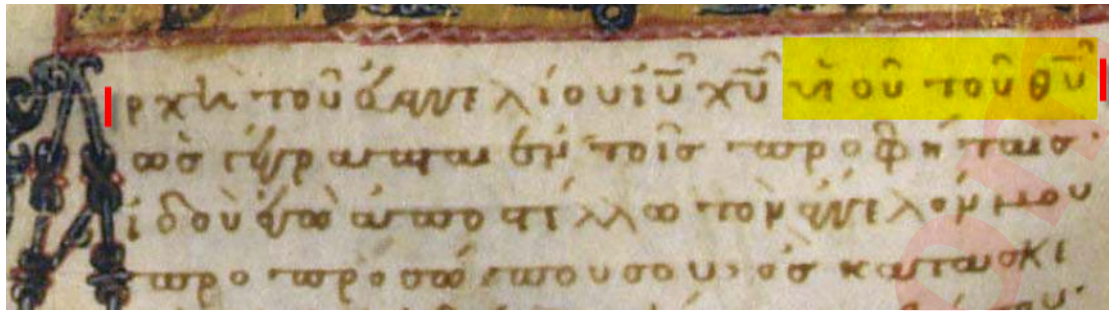 Ἀρχὴ τοῦ εὐαγγελίου ἰῡ χῡ υἱοῦ τοῦ θῡ
ὡς γέγραπται ἐν τοῖς προφήταις·
ἰδοὺ ἐγὼ ἀποστέλλω τὸν ἄγγελόν μου
πρὸ προσώπου σου, ὃς κατασκε